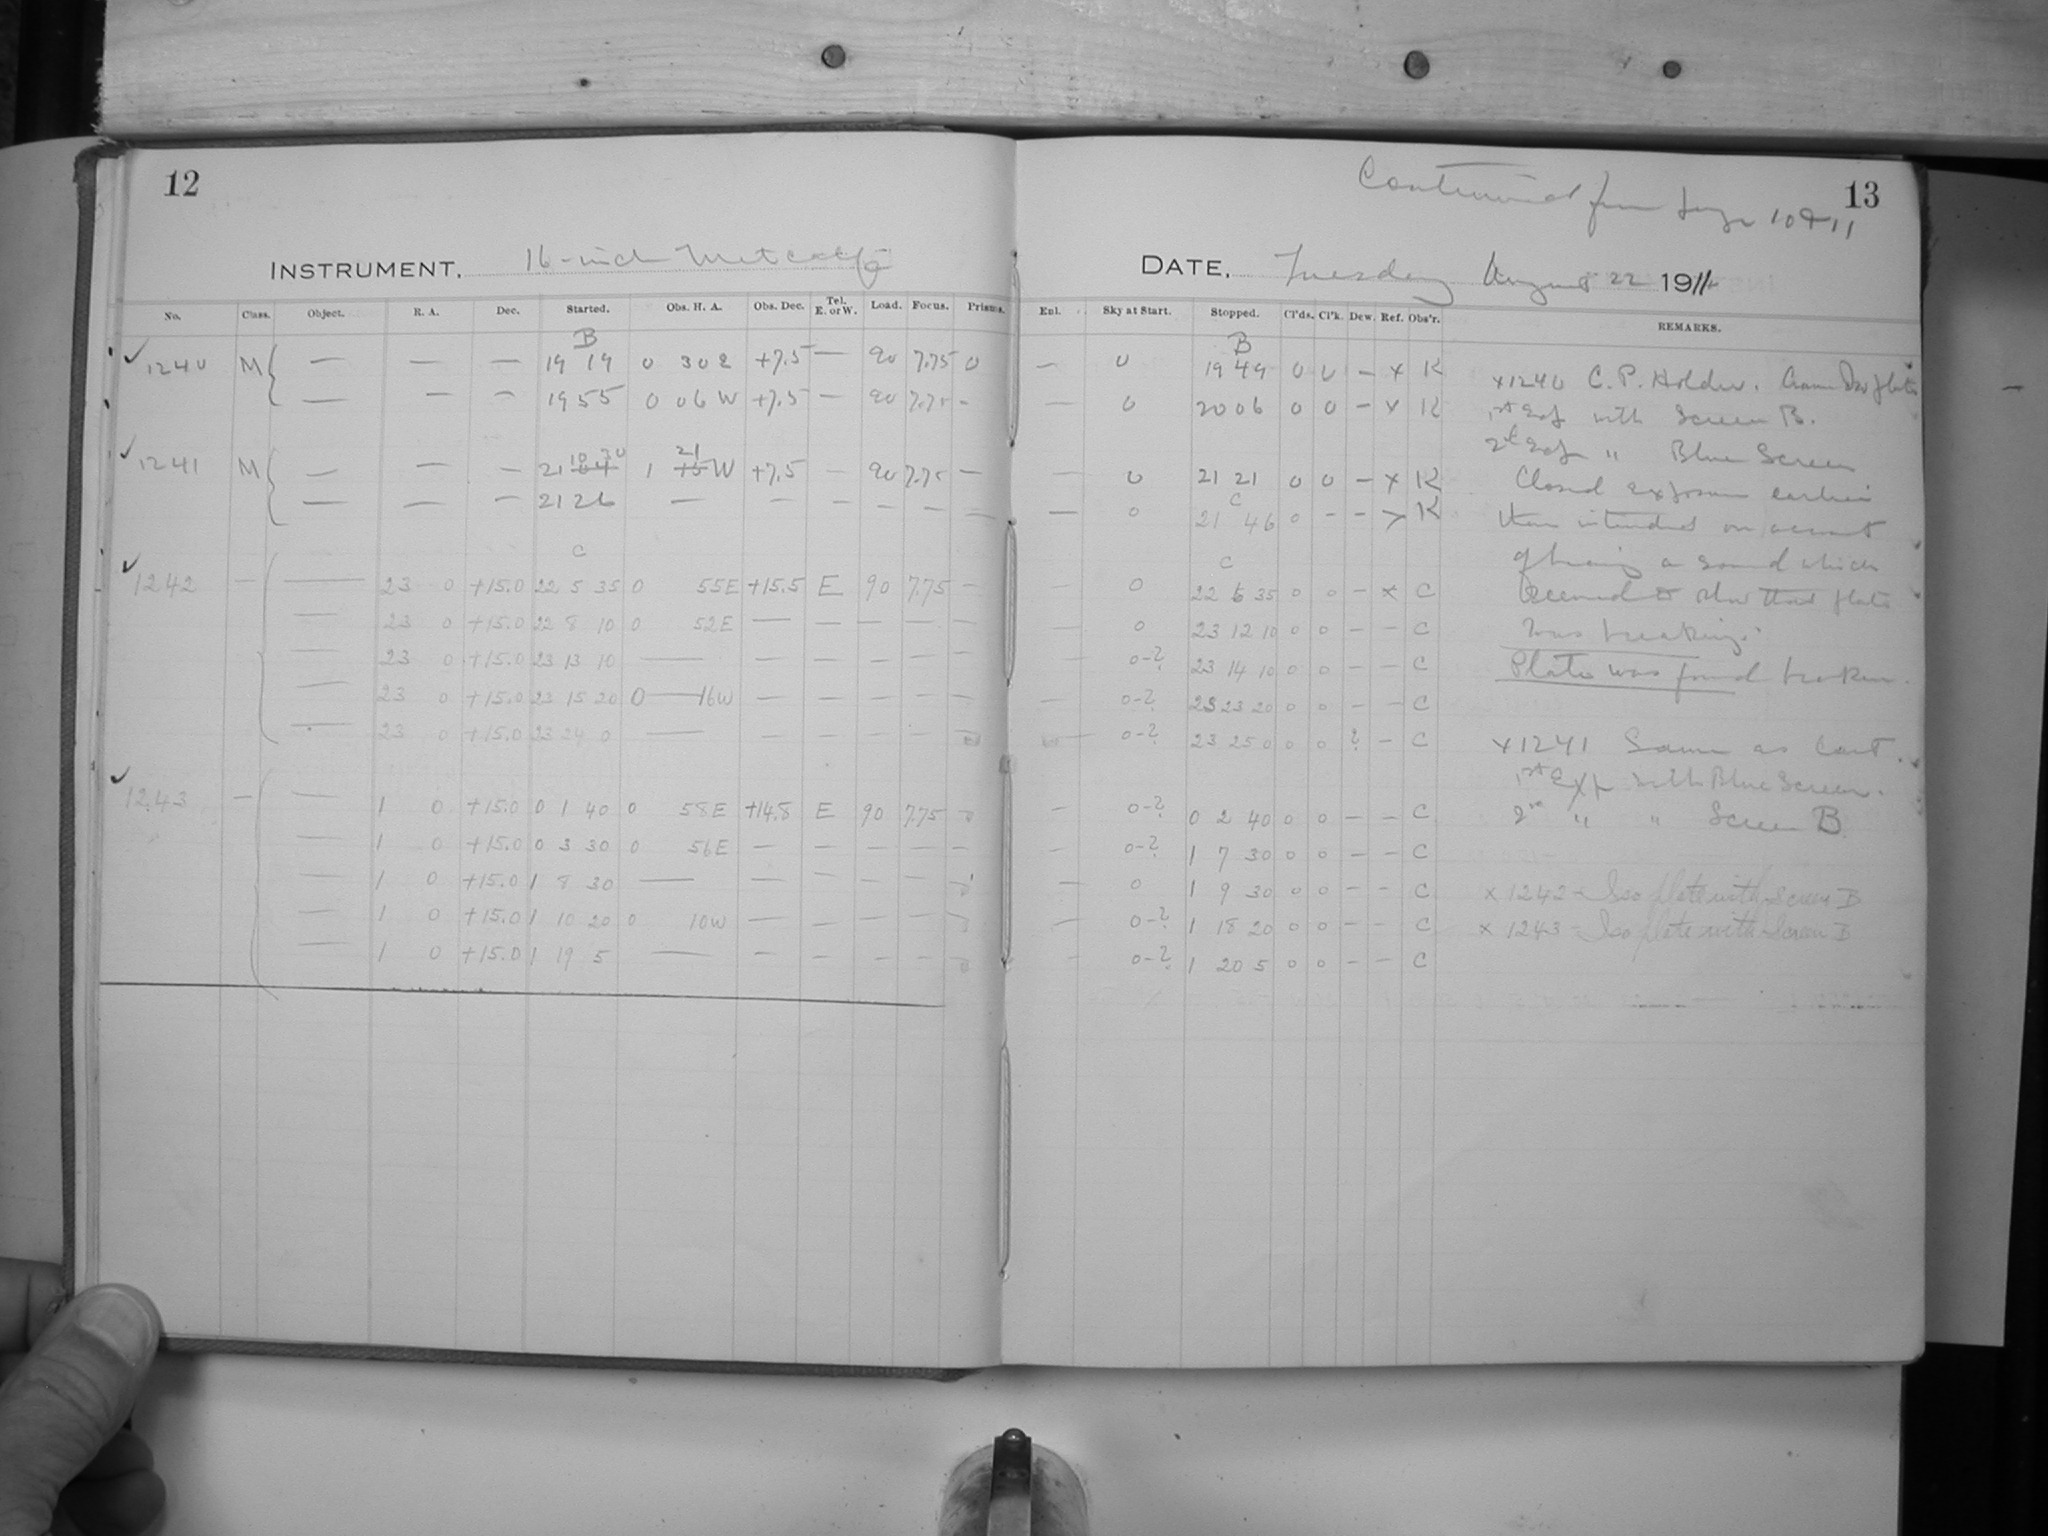 12
INSTRUMENT. 16-inch Metcalf
No. Class. Object. R. A. Dec. Started. Obs. H. A. Obs. Dec. Tel. E. or W. Load. Focus. Prisms.
B
1240 M { — — — 19 19 0 30 E +7.5 — 90 7.75 0
— — — 19 55 0 06 W +7.5 — 90 7.75 -
1241 M { — — — 21 10 30 1 21 W +7.5 — 90 7.75 —
— — — 21 26 — — — — — —
C
1242 — { — 23 0 +15.0 22 5 35 0 55E +15.5 E 90 7.75 —
— 23 0 +15.0 22 8 10 0 52E — — — — —
— 23 0 +15.0 23 13 10 — — — — — —
— 23 0 +15.0 23 15 20 0 — 16W — — — — —
— 23 0 +15.0 23 24 0 — — — — —
1243 — { — 1 0 +15.0 0 1 40 0 58E +14.8 E 90 7.75
— 1 0 +15.0 0 3 30 0 56E — — — — —
— 1 0 +15.0 1 8 30 — — — — —
— 1 0 +15.0 1 10 20 0 10W — — — —
— 1 0 +15.0 1 19 5 — — — — —
13
Continued from page 10 & 11
DATE. Tuesday August 22 1911
Enl. Sky at Start. Stopped. Cl'ds. Cl'k. Dew. Ref. Obs'r. REMARKS.
B
— 0 19 49 0 0 — x K
— 0 20 06 0 0 — x K
— 0 21 21 0 0 — x K
C
— 0 21 46 0 - - K
C
— 0 22 6 35 0 0 — x C
— 0 23 12 10 0 0 — — C
— 0-? 23 14 10 0 0 — — C
— 0-? 23 23 20 0 0 — — C
0-? 23 25 0 0 0 ? — C
— 0-? 0 2 40 0 0 — — C
— 0-? 1 7 30 0 0 — — C
— 0 1 9 30 0 0 — — C
— 0-? 1 18 20 0 0 — — C
— 0-? 1 20 5 0 0 — — C
x1240 C. P. Holder. Cram Iso plate
1st Exp with Screen B.
2d Exp " Blue Screen
Closed exposure earlier
than intended on account
of hearing a sound which
seemed to show that plate
was breaking.
Plate was found broken.
x1241 Same as last.
1st Exp with Blue Screen.
2d " " Screen B.
x 1242 - Iso plate with Screen B
x 1243 - Iso plate with Screen B